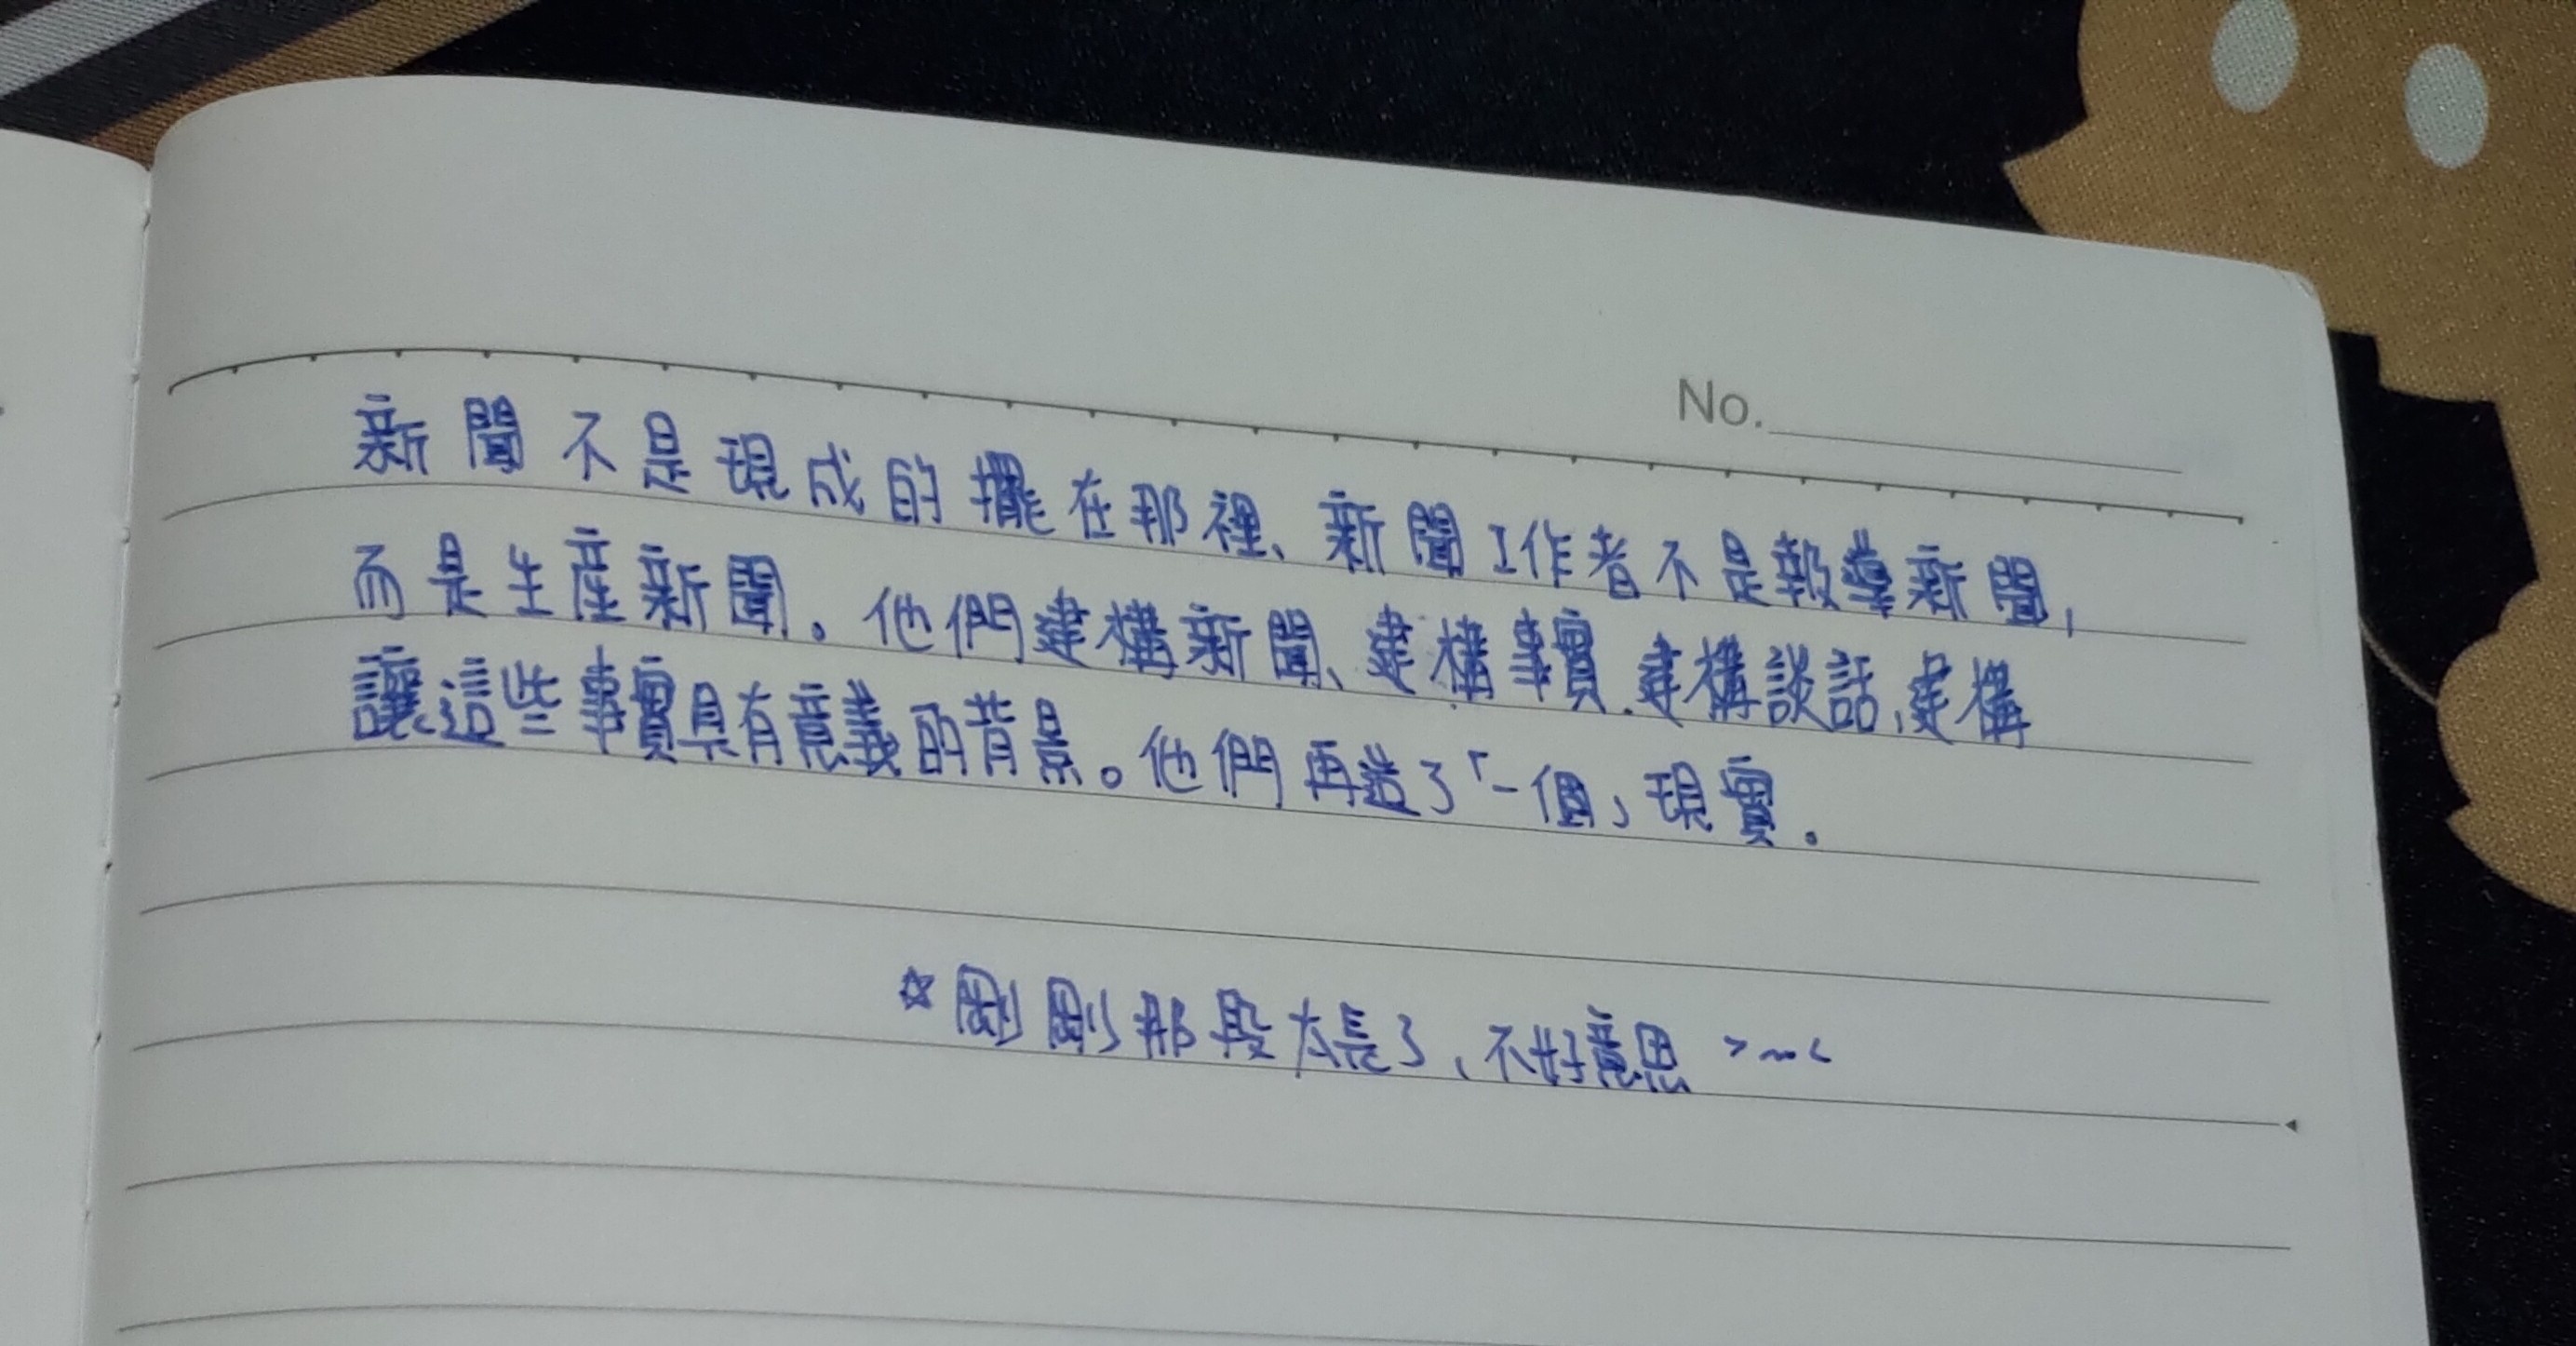 No.
新聞不是現成的擺在那裡、新聞工作者不是報導新聞,
而是生產新聞。他們建構新聞、建構事實、建構談話、建構
讓這些事實具有意義的背景。他們再造了「一個」現實。
☆剛剛那段太長了、不好意思 >~<